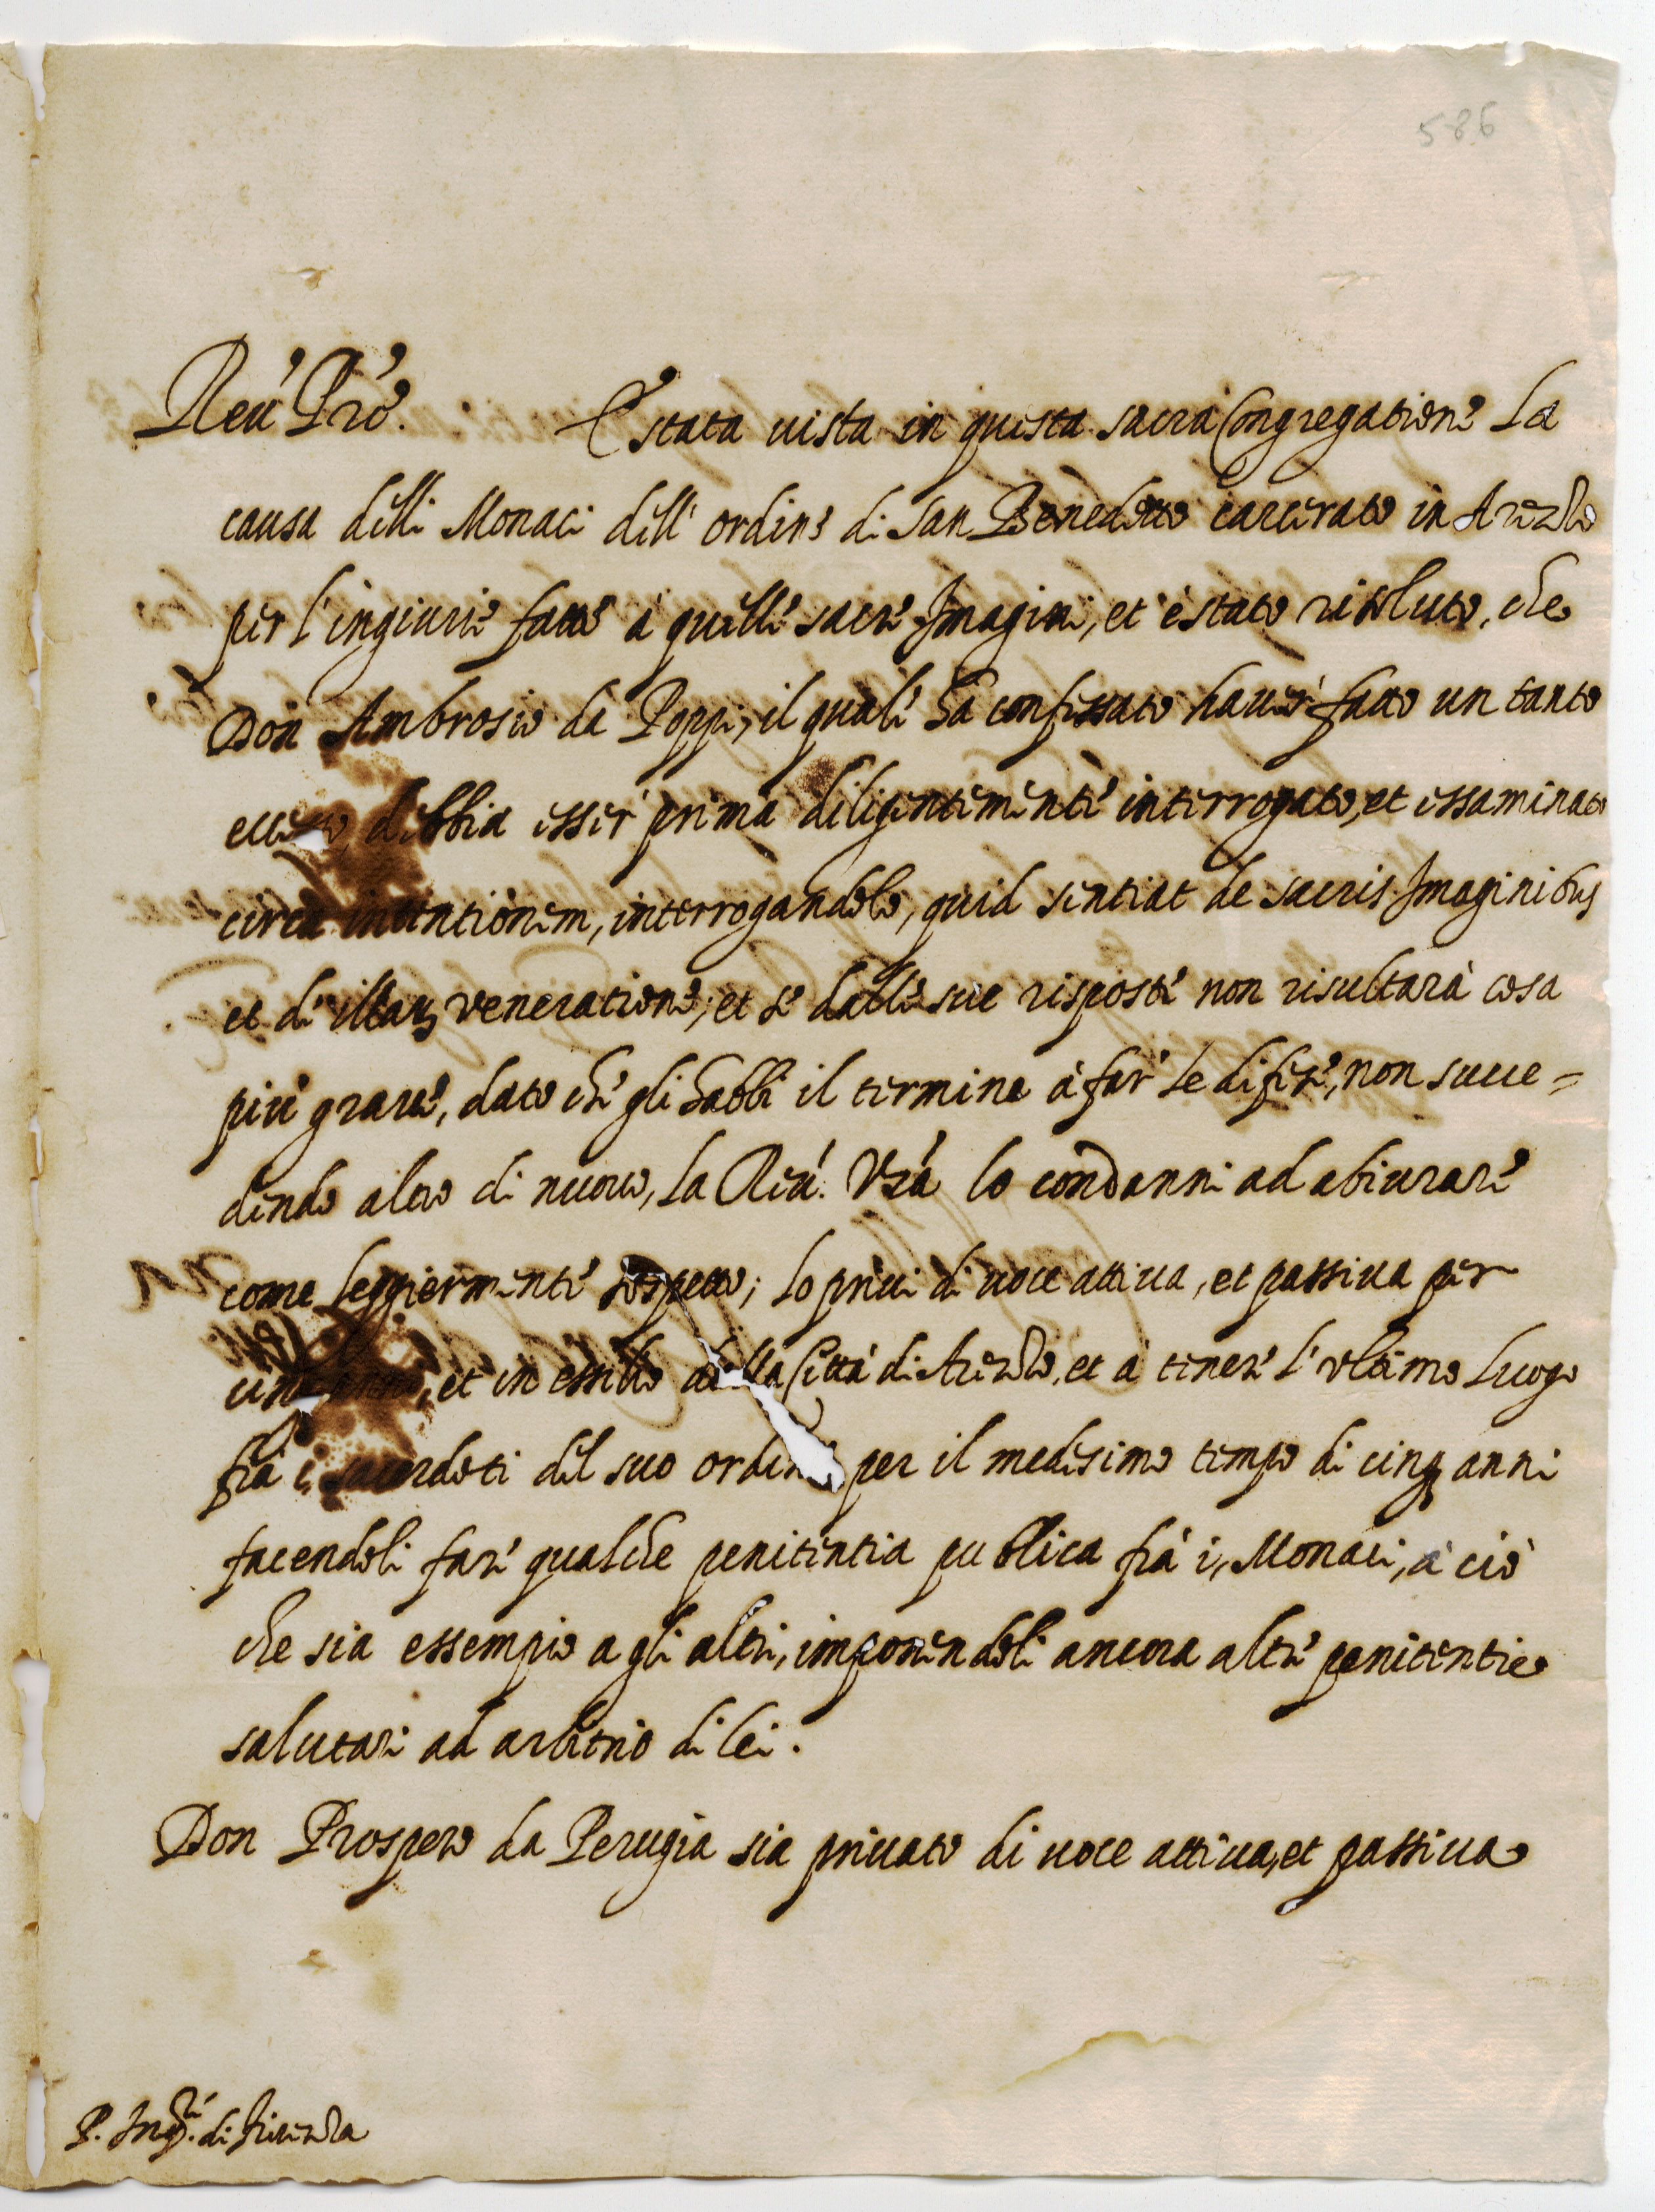 586
Reu. Prẽ. E stata uista in questa sacra Congregatione la
causa delli Monaci dell' ordine di San Benedetto carcerato in Arezzo
per l'ingiurie fatte à quelle sacre Imagini, et è stato risoluto, che
Don Ambrosio da Poppi, il quale ha confessato hauer' fatto un tanto
eccesso, debbia esser' prima diligentemente interrogato, et essaminato
circa intentionem, interrogandolo, quid sentiat de sacris Imaginibus
et de illarum veneratione; et se dalle sue risposte non risultarà cosa
più graue, dato che gli habbi il termine à far' le difese, non succe=
dendo altro di nuouo, la Reu. Vra lo condanni ad abiurare
come leggiermente sospetto; lo priui di uoce attiua, et passiua per
et in essilio della Città di Arezzo, et à tener' l'vltimo luogo
frà i, sacerdoti del suo ordine per il medesimo tempo di cinq anni
facendoli fare qualche penitentia publica frà i, Monaci, à ciò
che sia essempio a gli altri, imponendoli ancora altre penitentie
salutari ad arbitrio di lei.
Don Prospero da Perugia sia priuato di uoce attiua, et passiua
P. Inqre. di Fiorenza